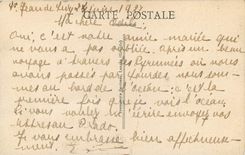 St Jean de Luz, 24 juin 1927
CARTE POSTALE
Ma chère
Oui, c'est votre amie mariée qui
ne vous a pas oubliée. Après un beau
voyage à travers les Pyrénées où nous
avons passés par Lourdes, nous som-
mes au bord de l'océan, c'est la
première fois que je vois l'océan.
Si vous voulez m'écrire envoyez vos
lettres au Prado.
Je vous embrasse bien affectueuse-
ment.